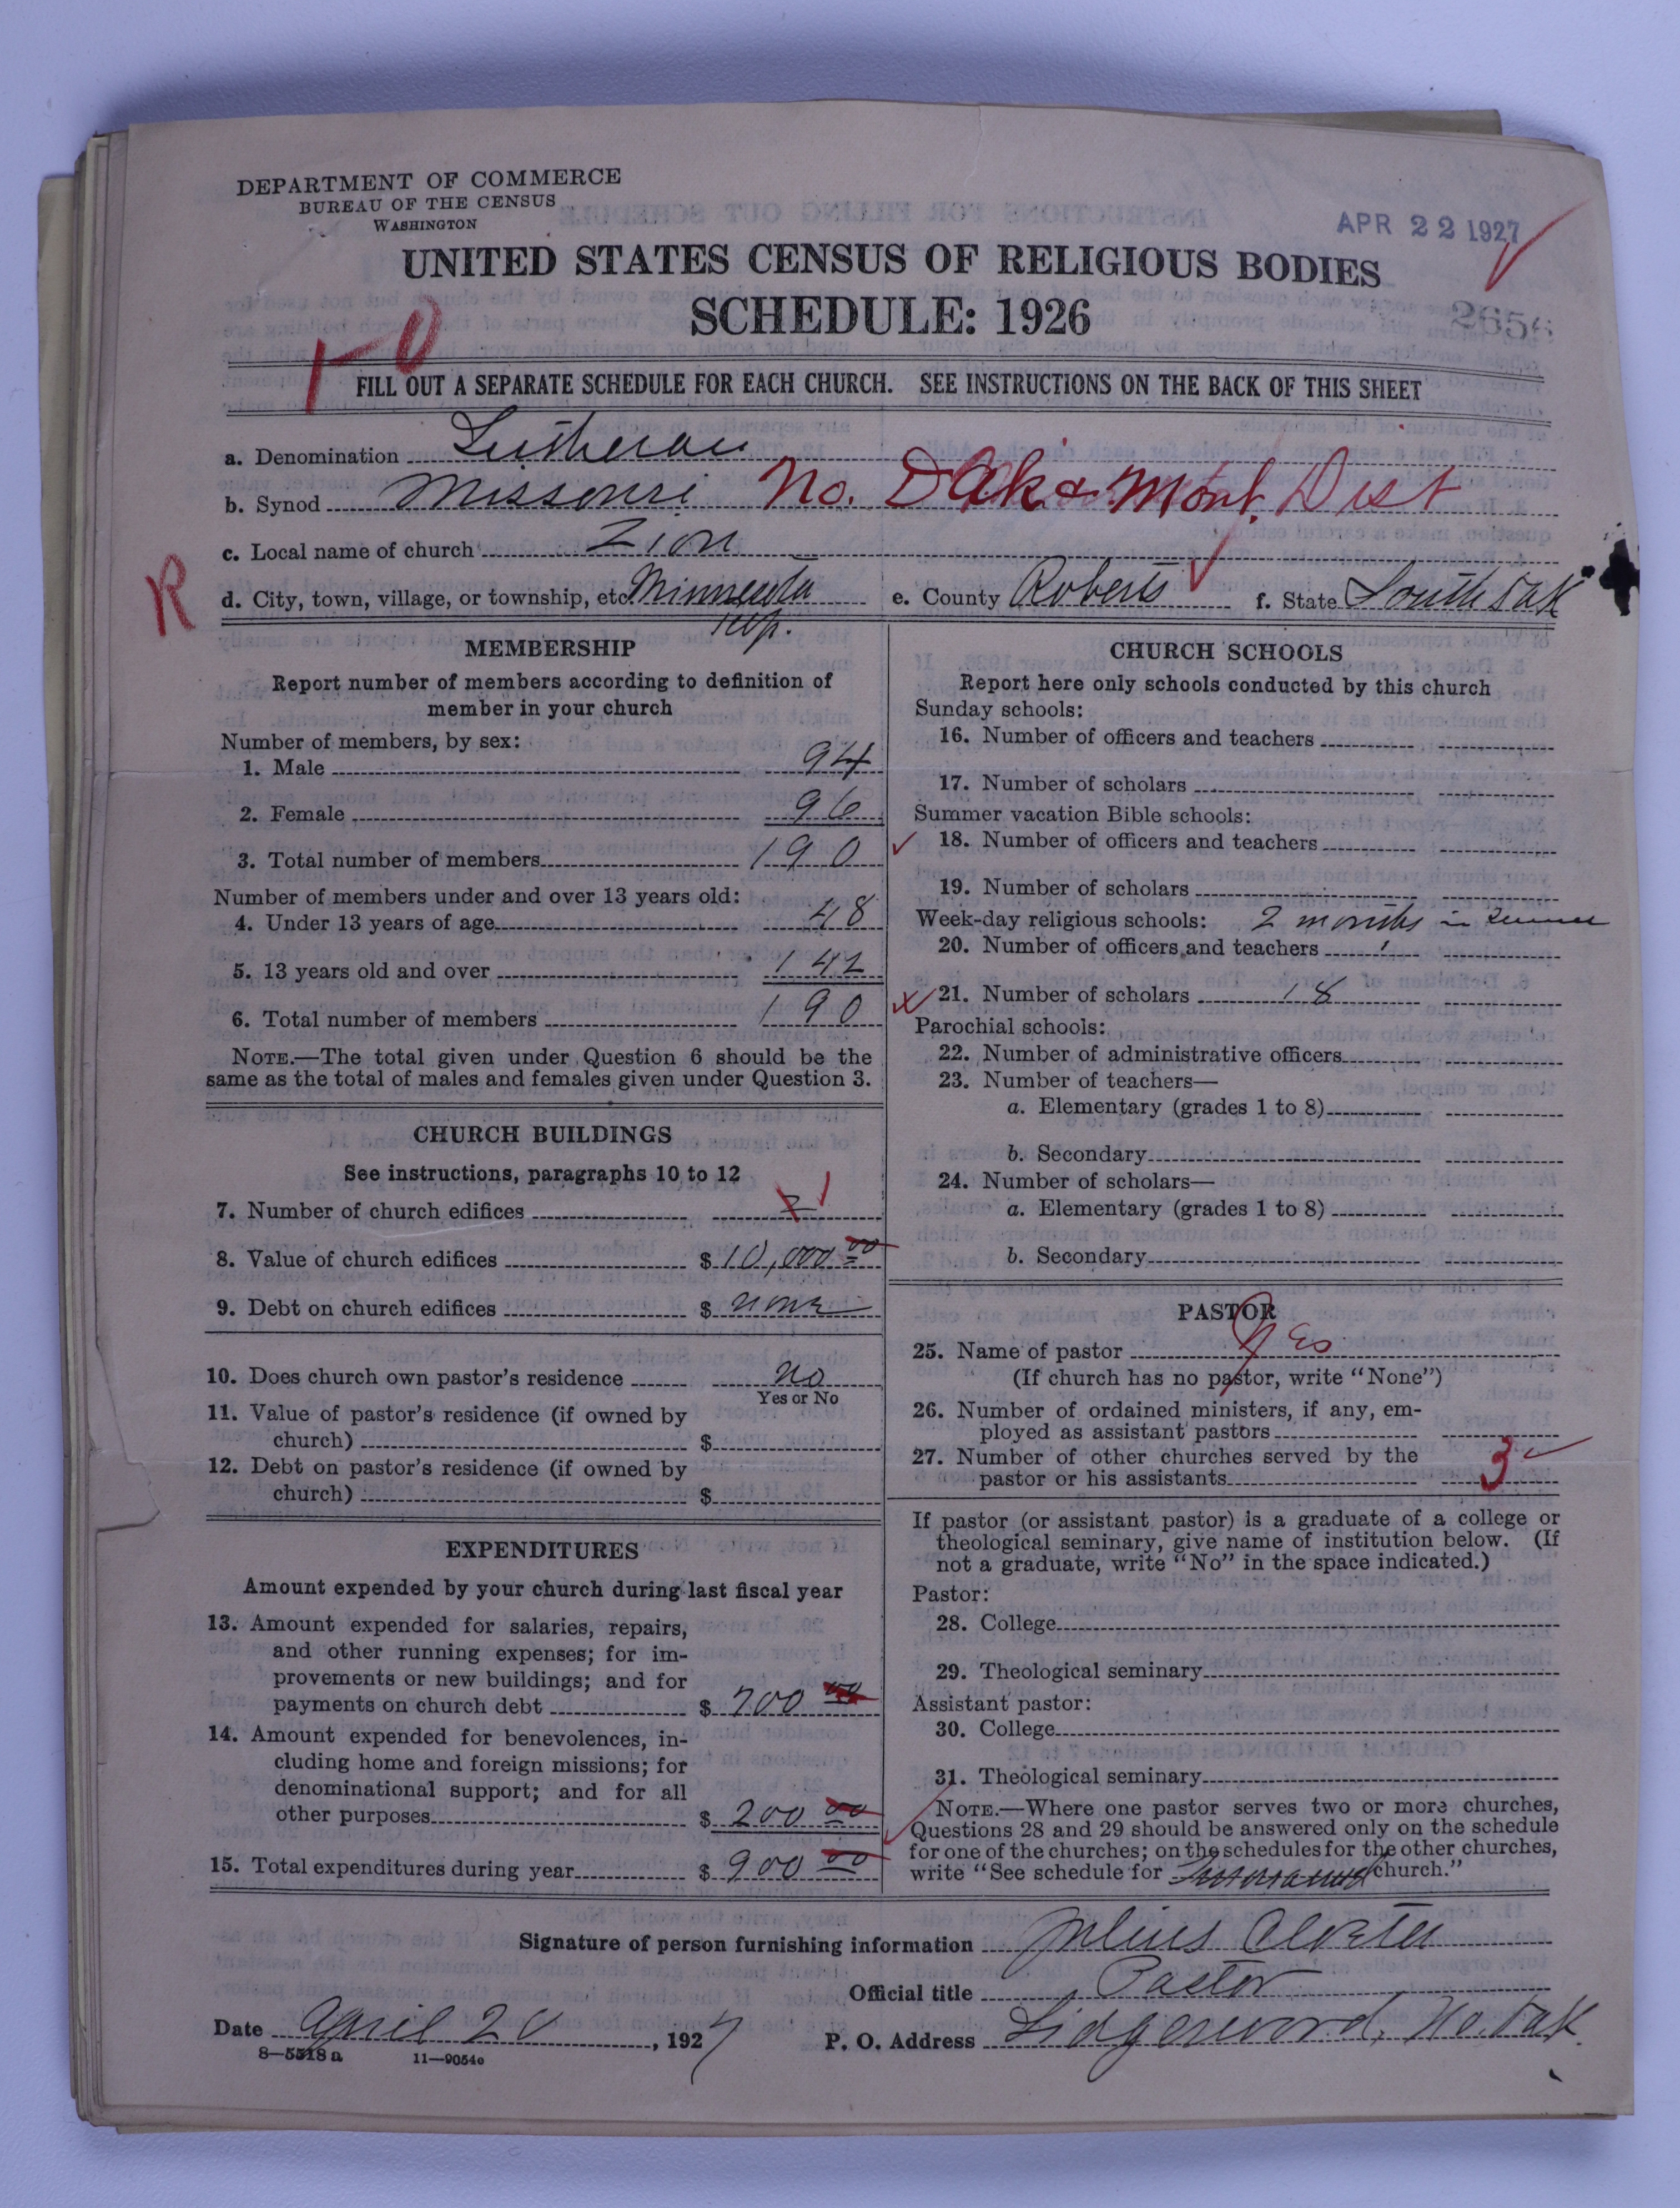 DEPARTMENT OF COMMERCE
BUREAU OF THE CENSUS
WASHINGTON
APR 22 1927
UNITED STATES CENSUS OF RELIGIOUS BODIES
SCHEDULE: 1926
FILL OUT A SEPARATE SCHEDULE FOR EACH CHURCH. SEE INSTRUCTIONS ON THE BACK OF THIS SHEET
a. Denomination Lutheran
b. Synod Missouri No. Dak & Mont. Dist
c. Local name of church Zion
R
d. City, town, village, or township, etc. Minnesota twp. e. County Roberts f. State South Dak
MEMBERSHIP
Report number of members according to definition of
member in your church
Number of members, by sex:
1. Male 94
2. Female 96
3. Total number of members 190
Number of members under and over 13 years old:
4. Under 13 years of age 48
5. 13 years old and over 142
6. Total number of members 190
NOTE.—The total given under Question 6 should be the
same as the total of males and females given under Question 3.
CHURCH BUILDINGS
See instructions, paragraphs 10 to 12
7. Number of church edifices 1
8. Value of church edifices $ 10,000 00
9. Debt on church edifices $ none
10. Does church own pastor's residence no
Yes or No
11. Value of pastor's residence (if owned by
church) $
12. Debt on pastor's residence (if owned by
church) $
EXPENDITURES
Amount expended by your church during last fiscal year
13. Amount expended for salaries, repairs,
and other running expenses; for im-
provements or new buildings; and for
payments on church debt $ 700 00
14. Amount expended for benevolences, in-
cluding home and foreign missions; for
denominational support; and for all
other purposes $ 200 00
15. Total expenditures during year $ 900 00
CHURCH SCHOOLS
Report here only schools conducted by this church
Sunday schools:
16. Number of officers and teachers
17. Number of scholars
Summer vacation Bible schools:
18. Number of officers and teachers
19. Number of scholars
Week-day religious schools: 2 months in summer
20. Number of officers and teachers 1
21. Number of scholars 18
Parochial schools:
22. Number of administrative officers
23. Number of teachers—
a. Elementary (grades 1 to 8)
b. Secondary
24. Number of scholars—
a. Elementary (grades 1 to 8)
b. Secondary
PASTOR
25. Name of pastor Yes
(If church has no pastor, write "None")
26. Number of ordained ministers, if any, em-
ployed as assistant pastors
27. Number of other churches served by the
pastor or his assistants 3
If pastor (or assistant pastor) is a graduate of a college or
theological seminary, give name of institution below. (If
not a graduate, write "No" in the space indicated.)
Pastor:
28. College
29. Theological seminary
Assistant pastor:
30. College
31. Theological seminary
NOTE.—Where one pastor serves two or more churches,
Questions 28 and 29 should be answered only on the schedule
for one of the churches; on the schedules for the other churches,
write "See schedule for church."
Signature of person furnishing information Julius
Official title Pastor
Date April 20, 1927 P. O. Address Lidgerwood, No. Dak.
8—5518 a 11—9054c